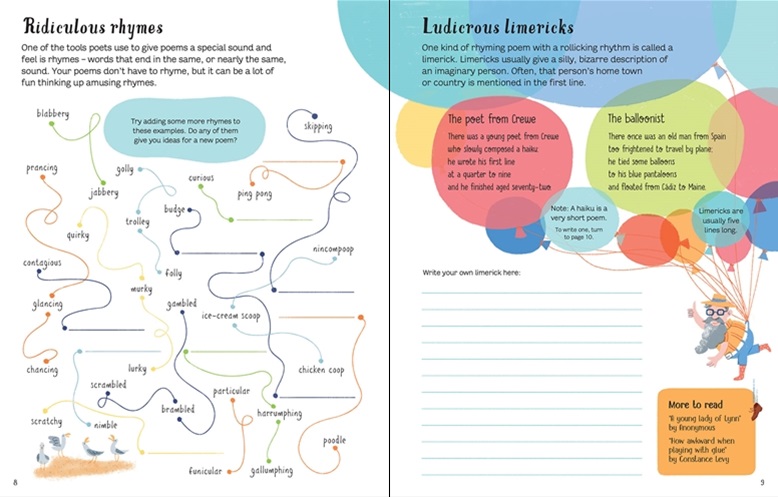 Ridiculous rhymes
One of the tools poets use to give poems a special sound and
feel is rhymes – words that end in the same, or nearly the same,
sound. Your poems don't have to rhyme, but it can be a lot of
fun thinking up amusing rhymes.
blabbery
Try adding some more rhymes to
these examples. Do any of them
give you ideas for a new poem?
skipping
prancing
golly
curious
ping pong
jabbery
budge
trolley
quirky
nincompoop
contagious
folly
murky
glancing
gambled
ice-cream scoop
chancing
lurky
chicken coop
scrambled
particular
scratchy
nimble
brambled
harrumphing
poodle
funicular
gallumphing
8
Ludicrous limericks
One kind of rhyming poem with a rollicking rhythm is called a
limerick. Limericks usually give a silly, bizarre description of
an imaginary person. Often, that person's home town
or country is mentioned in the first line.
The poet from Crewe
There was a young poet from Crewe
who slowly composed a haiku:
he wrote his first line
at a quarter to nine
and he finished aged seventy-two.
The balloonist
There once was an old man from Spain
too frightened to travel by plane:
he tied some balloons
to his blue pantaloons
and floated from Cádiz to Maine.
Note: A haiku is a
very short poem.
To write one, turn
to page 10.
Limericks are
usually five
lines long.
Write your own limerick here:
More to read
'A young lady of Lynn'
by Anonymous
'How awkward when
playing with glue'
by Constance Levy
9